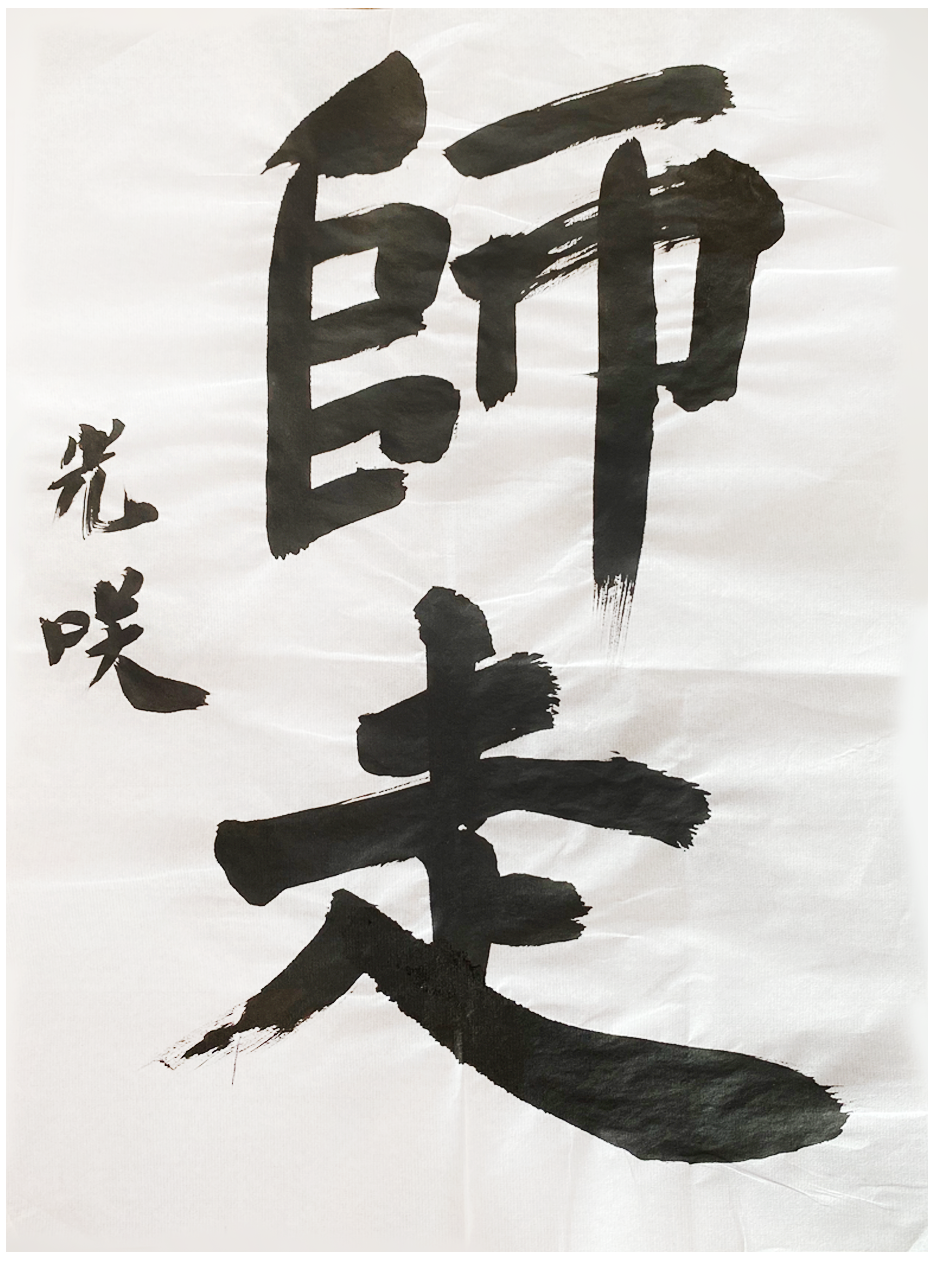 師走
光咲